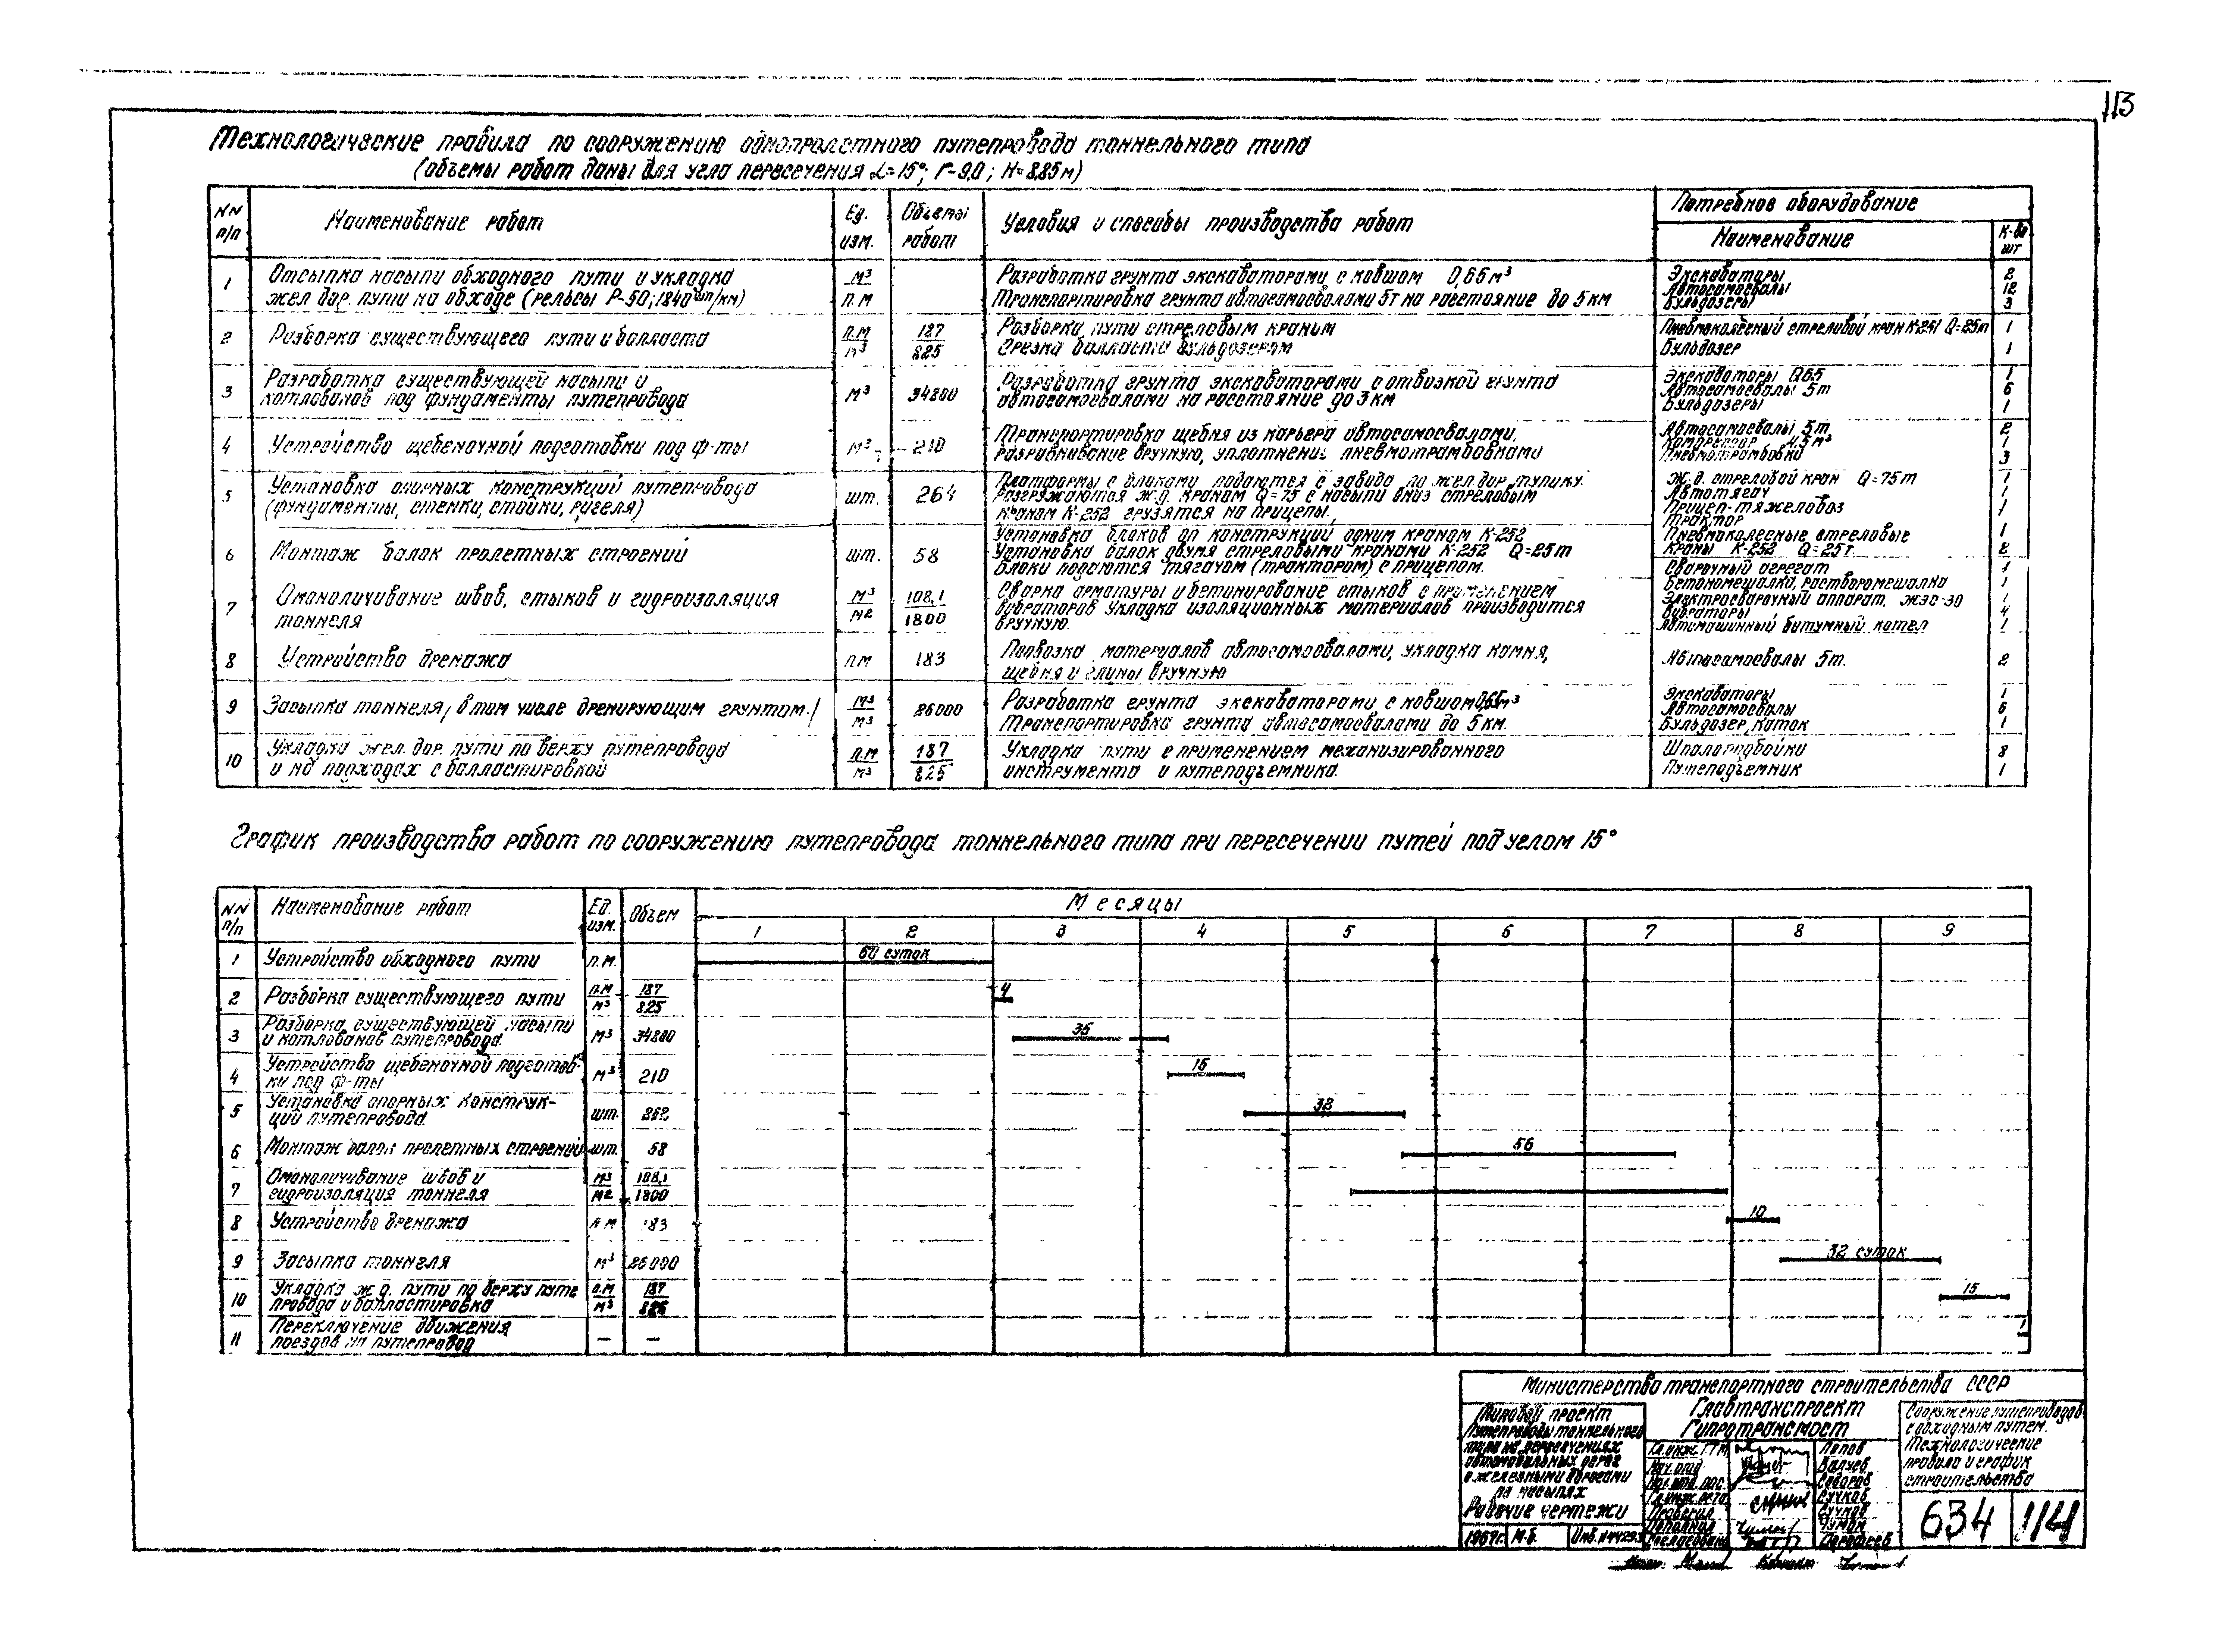 113
Технологические правила по сооружению однопролетного путепровода тоннельного типа
(объемы работ даны для угла пересечения α=15°; Г-9,0; H=8.85м)
NN п/п
Наименование работ
Ед. изм.
Объемы работ
Условия и способы производства работ
Потребное оборудование
Наименование
К-во шт
1
Отсыпка насыпи обходного пути и укладка
жел дор. пути на обходе (рельсы Р-50; 1840 шп/км)
м³
п.м
Разработка грунта экскаваторами с ковшом 0,65 м³
Транспортировка грунта автосамосвалами 5т на расстояние до 5 км
Экскаваторы 2
Автосамосвалы 12
Бульдозеры 3
2
Разборка существующего пути и балласта
п.м 187
м³ 825
Разборка пути стреловым краном
Срезка балласта бульдозером
Пневмоколесный стреловой кран К-251 Q=25т 1
Бульдозер 1
3
Разработка существующей насыпи и
котлованов под фундаменты путепровода
м³
34800
Разработка грунта экскаваторами с отвозкой грунта
автосамосвалами на расстояние до 3 км
Экскаваторы 0.65 1
Автосамосвалы 5т 6
Бульдозеры 1
4
Устройство щебеночной подготовки под ф-ты
м³
210
Транспортировка щебня из карьера автосамосвалами,
разравнивание вручную, уплотнение пневмотрамбовками
Автосамосвалы 5т. 2
Компрессор 4,5 м³ 1
Пневмотрамбовки 3
5
Установка опорных конструкций путепровода
(фундаменты, стенки, стойки, ригеля)
шт.
264
Платформы с блоками подаются с завода по жел дор. тупику.
Разгружаются ж.д. краном Q=75 с насыпи вниз стреловым
краном К-252 грузятся на прицепы.
Ж.д. стреловой кран Q=75т 1
Автотягач 1
Прицеп-тяжеловоз 1
Трактор
6
Монтаж балок пролетных строений
шт.
58
Установка блоков оп конструкций одним краном К-252
Установка балок двумя стреловыми кранами К-252 Q=25т
Блоки подаются тягачом (трактором) с прицепом.
Пневмоколесные стреловые 1
краны К-252 Q=25т. 2
Сварочный агрегат 1
7
Омоноличивание швов, стыков и гидроизоляция
тоннеля
м³ 108,1
м2 1800
Сварка арматуры и бетонирование стыков с применением
вибраторов Укладка изоляционных материалов производится
вручную.
Бетономешалка, растворомешалка 1
Электросварочный аппарат, жэс-30 1
Вибраторы 4
Автомашинный битумный котел 1
8
Устройство дренажа
п.м
183
Подвозка материалов автосамосвалами, укладка камня,
щебня и глины вручную
Автосамосвалы 5т. 2
9
Засыпка тоннеля, в том числе дренирующим грунтом.
м³
м³
26000
Разработка грунта экскаваторами с ковшом 0,65м³
Транспортировка грунта автосамосвалами до 5 км.
Экскаваторы 1
Автосамосвалы 6
Бульдозер, каток 1
10
Укладка жел. дор. пути по верху путепровода
и на подходах с балластировкой
п.м 187
м³ 825
Укладка пути с применением механизированного
инструмента и путеподъемника.
Шпалоподбойки 8
Путеподъемник 1
График производства работ по сооружению путепровода тоннельного типа при пересечении путей под углом 15°
NN п/п
Наименование работ
Ед. изм.
Объем
Месяцы
1 2 3 4 5 6 7 8 9
1
Устройство обходного пути
п.м.
60 суток
2
Разборка существующего пути
п.м 187
м³ 825
4
3
Разборка существующей насыпи
и котлованов путепровода.
м³
34800
35
4
Устройство щебеночной подготов-
ки под ф-ты
м³
210
15
5
Установка опорных конструк-
ций путепровода.
шт.
262
32
6
Монтаж балок пролетных строений
шт.
58
56
7
Омоноличивание швов и
гидроизоляция тоннеля
м³ 108,1
м2 1800
8
Устройство дренажа
п м
183
10
9
Засыпка тоннеля
м³
26000
32 суток
10
Укладка ж д. пути по верху путе
провода и балластировка
п.м 187
м³ 825
15
11
Переключение движения
поездов на путепровод
—
—
1
Министерство транспортного строительства СССР
Главтранспроект
Гипротрансмост
Типовой проект
Путепроводы тоннельного
типа на пересечениях
автомобильных дорог
с железными дорогами
на насыпях
Рабочие чертежи
1967г.
М-б.
Инв.
Гл.инж. ГТМ
Попов
Нач. отд
Валуев
Сидоров
Сучков
Проверил
Сучков
Исполнил
Сооружение путепроводов
с обходным путем.
Технологические
правила и график
строительства
634
114